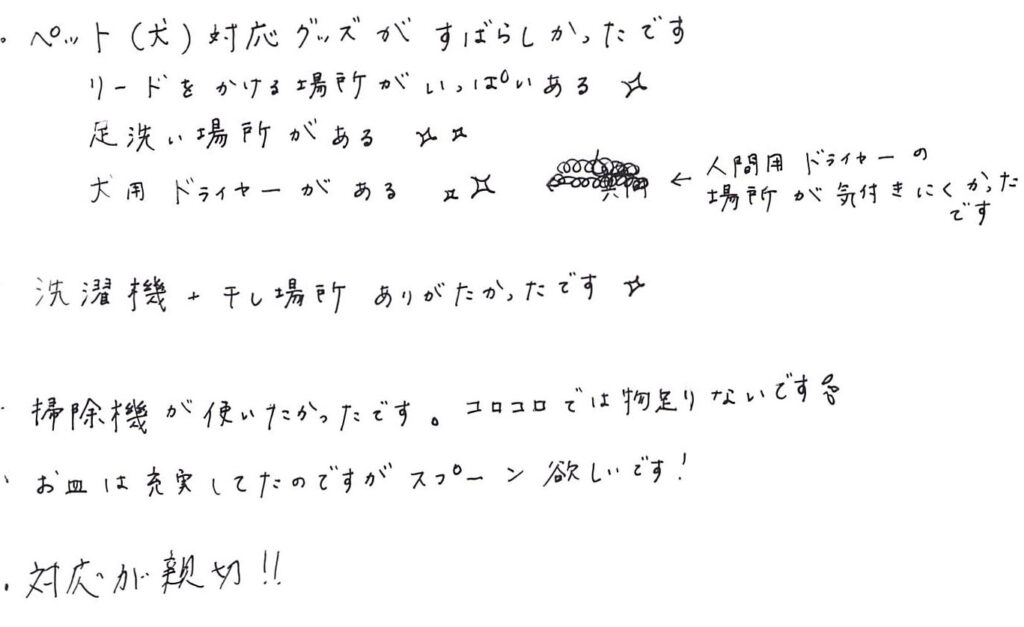 ・ペット(犬)対応グッズがすばらしかったです
リードをかける場所がいっぱいある ☆
足洗い場所がある ☆☆
犬用ドライヤーがある ☆☆
← 人間用ドライヤーの
場所が気付きにくかった
です
洗濯機+干し場所 ありがたかったです ☆
・掃除機が使いたかったです。コロコロでは物足りないです
・お皿は充実してたのですがスプーン欲しいです!
・対応が親切!!